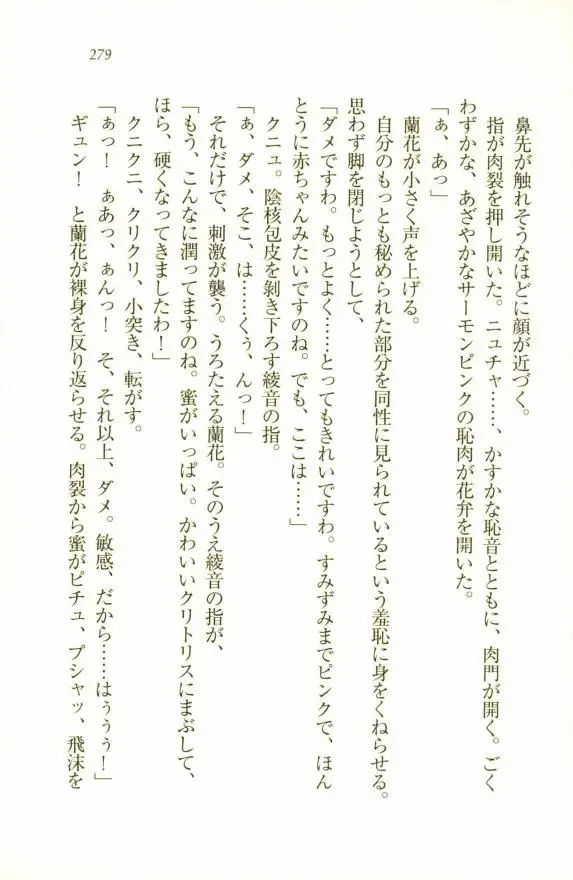 279
鼻先が触れそうなほどに顔が近づく。
指が肉裂を押し開いた。ニュチャ……、かすかな恥音とともに、肉門が開く。ごく
わずかな、あざやかなサーモンピンクの恥肉が花弁を開いた。
「ぁ、あっ」
蘭花が小さく声を上げる。
自分のもっとも秘められた部分を同性に見られているという羞恥に身をくねらせる。
思わず脚を閉じようとして、
「ダメですわ。もっとよく……とってもきれいですわ。すみずみまでピンクで、ほん
とうに赤ちゃんみたいですのね。でも、ここは……」
クニュ。陰核包皮を剝き下ろす綾音の指。
「ぁ、ダメ、そこ、は……くぅ、んっ！」
それだけで、刺激が襲う。うろたえる蘭花。そのうえ綾音の指が、
「もう、こんなに潤ってますのね。蜜がいっぱい。かわいいクリトリスにまぶして、
ほら、硬くなってきましたわ！」
クニクニ、クリクリ、小突き、転がす。
「ぁっ！　ぁあっ、ぁんっ！　そ、それ以上、ダメ。敏感、だから……はぅぅぅ！」
ギュン！　と蘭花が裸身を反り返らせる。肉裂から蜜がピチュ、プシャッ、飛沫を